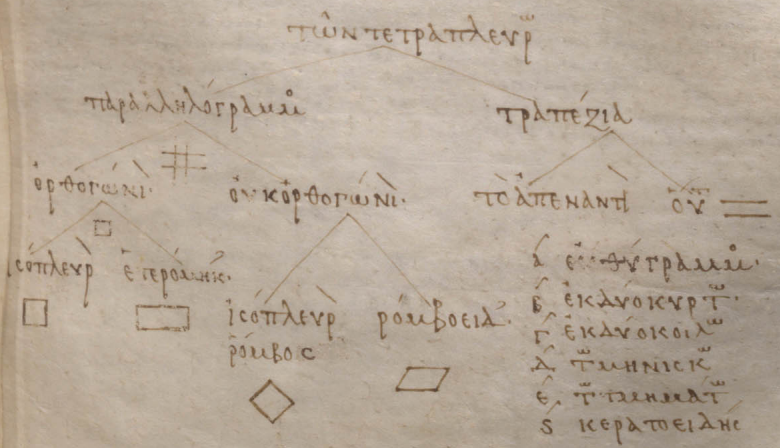 τῶν τετραπλεύρ
παραλληλόγραμμ
τραπέζια
ὀρθογώνι
οὐκ ὀρθογώνι
τὸ ἀπεναντι
οὐ
ἰσόπλευρ
ἑτερόμηκ
ἰσόπλευρ
ῥόμβος
ῥομβοειδ
α εὐθύγραμμ
β ἐκ δύο κυρτ
γ ἐκ δύο κοιλ
δ τ μηνισκ
ε τ τμηματ
ς κερατοειδής